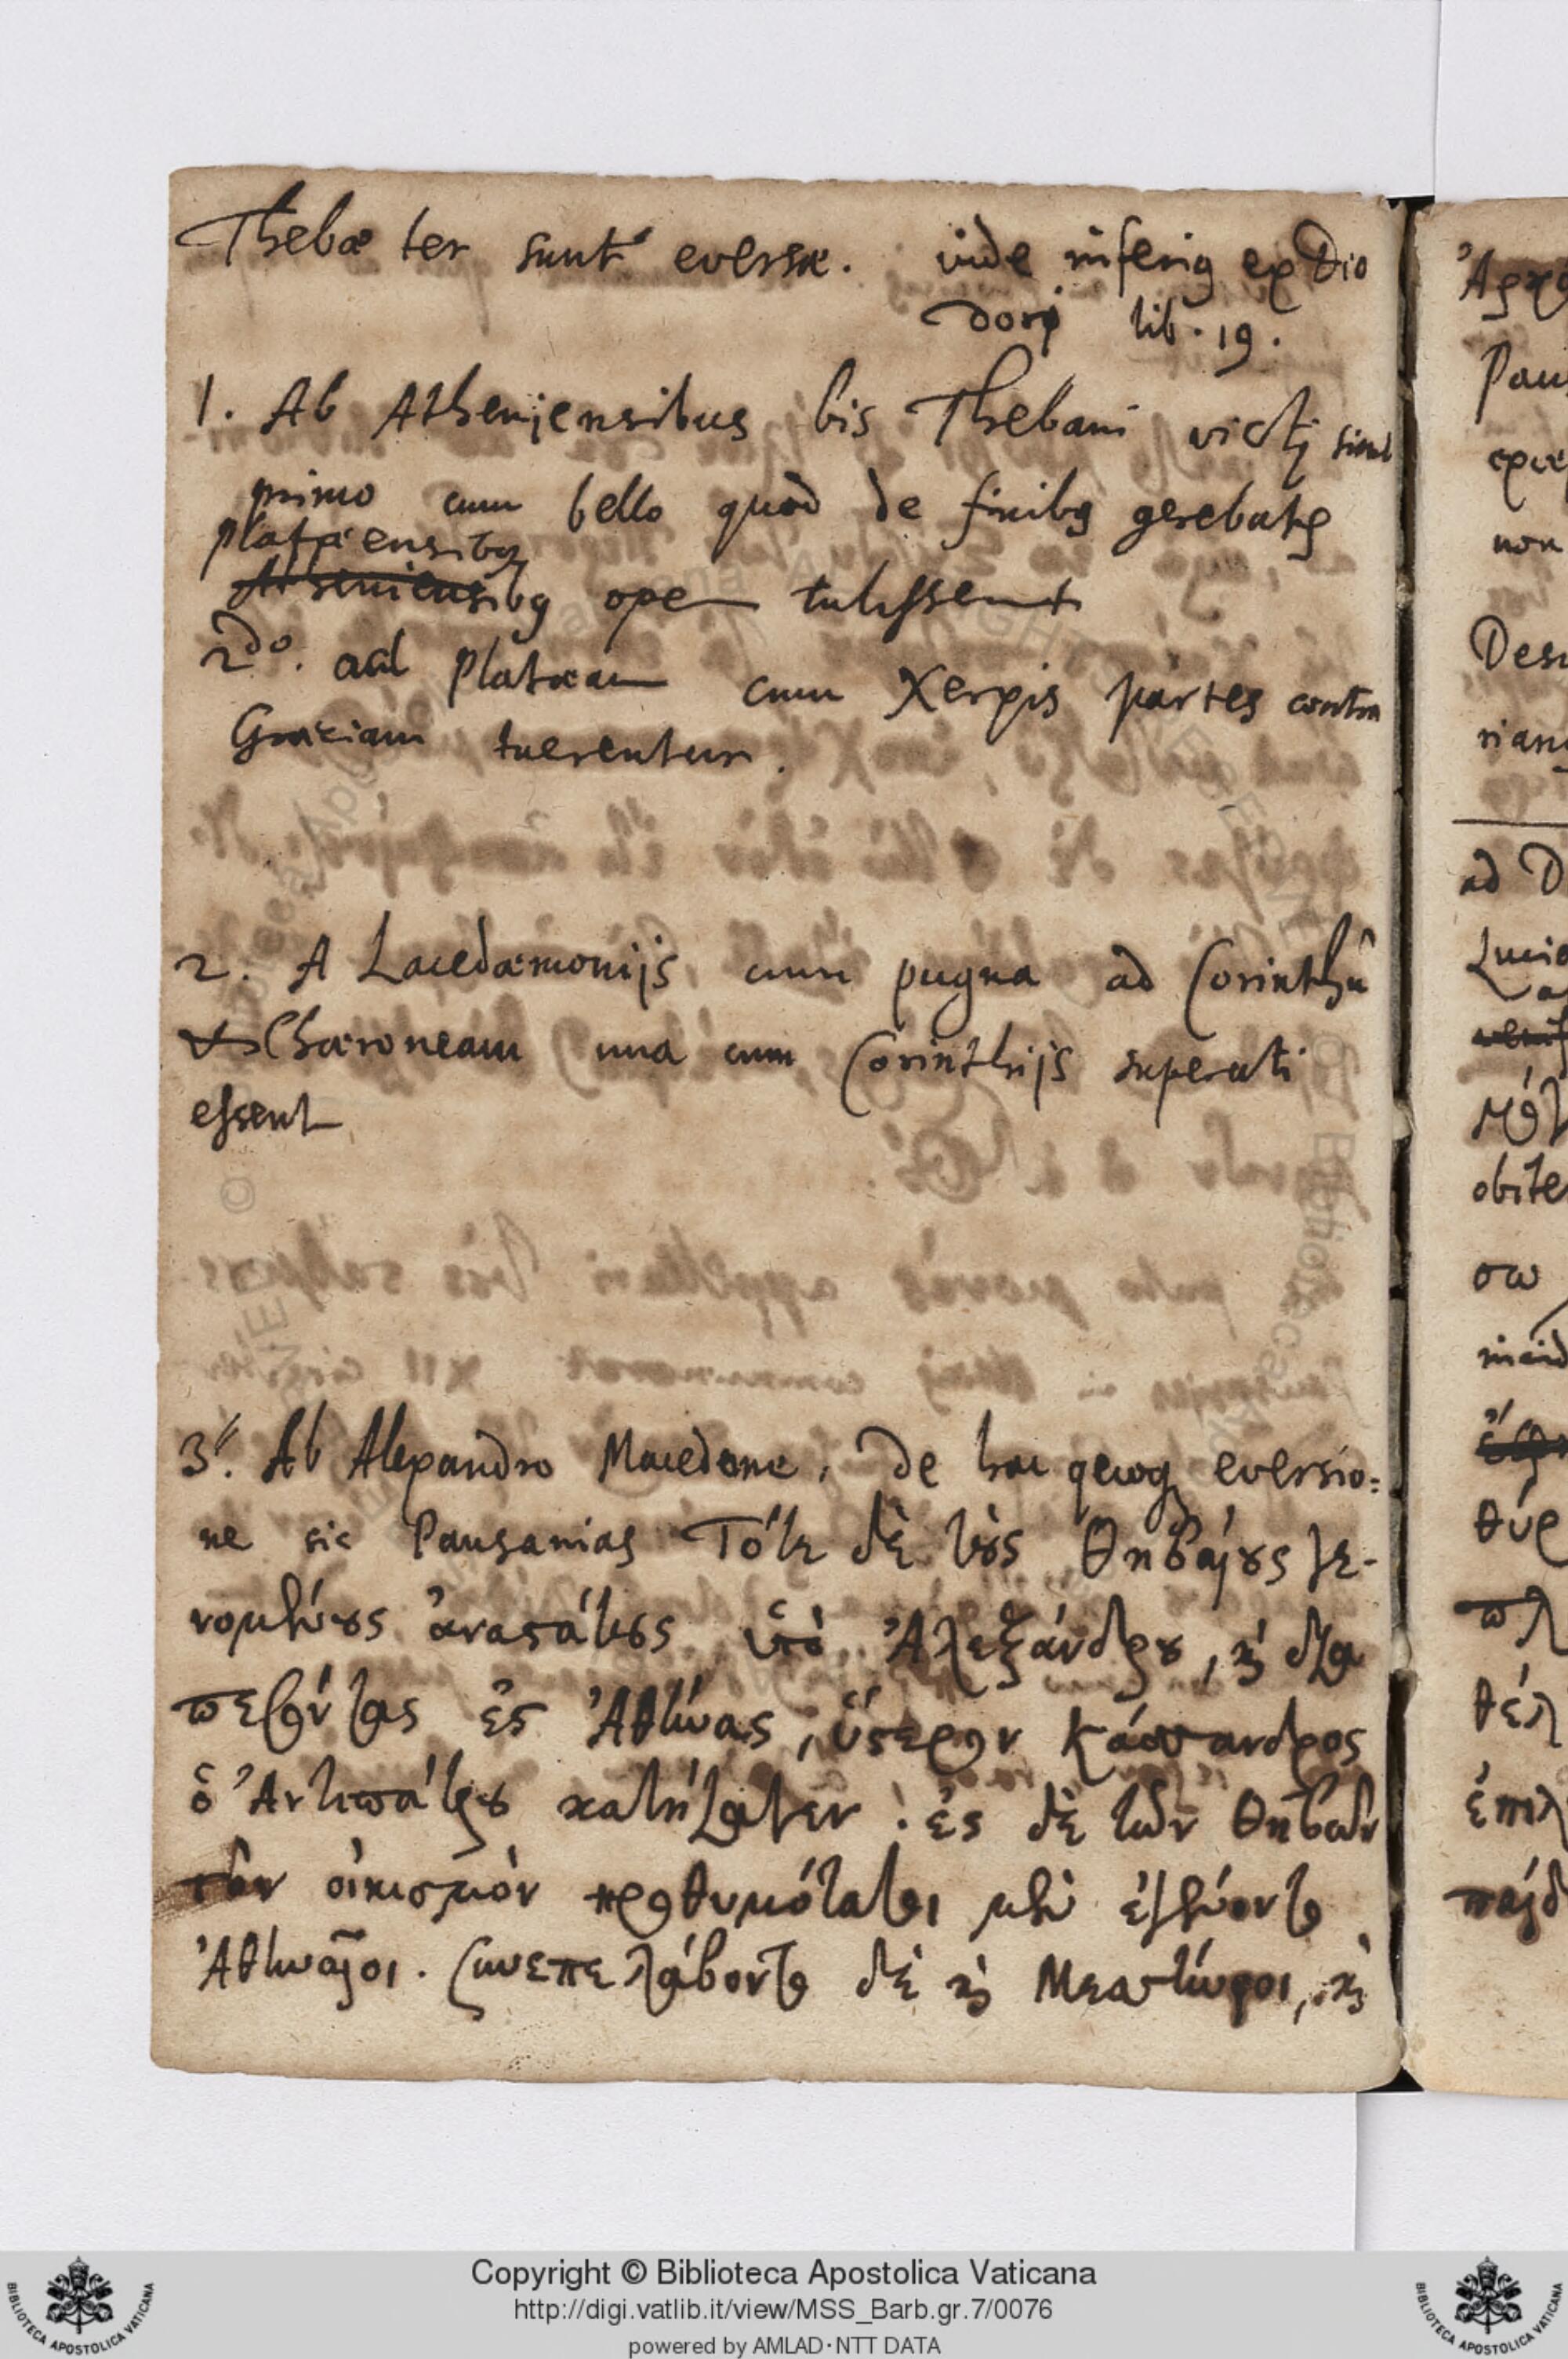 Thebæ ter sunt eversæ. vide inferius ex Dio
dori lib. 19.
1. Ab Atheniensibus bis Thebani victi sunt
primo cum bello quod de finibus gerebatur
Platæensibus
opem tulissent
2do. ad Platæam cum Xerxis partes contra
Græciam tuerentur.
2. A Lacedæmonijs cum pugna ad Corinthū
& Chæroneam una cum Corinthijs superati
essent
3. Ab Alexandro Macedone. De hac eversio=
ne sic Pausanias Τότε δὲ τοὺς Θηβαίους γε-
νομένους ἀναστάτους ὑπὸ Ἀλεξάνδρου, καὶ δια
πεσόντας ἐς Ἀθήνας, ὕστερον Κάσσανδρος
ὁ Ἀντιπάτρου κατήγαγεν. ἐς δὲ τῶν Θηβῶν
τὸν οἰκισμὸν προθυμότατοι μὲν ἐγένοντο
Ἀθηναῖοι. συνεπελάβοντο δὲ καὶ Μεσσήνιοι, καὶ
Ἀρχ
Pau
non
Desi
rian
ad D
Lucia
obite
σω
θύρ
πλ
θέλ
ἐπιλ
παιδ
Copyright © Biblioteca Apostolica Vaticana
http://digi.vatlib.it/view/MSS_Barb.gr.7/0076
powered by AMLAD·NTT DATA
BIBLIOTECA APOSTOLICA VATICANA
BIBLIOTECA APOSTOLICA VATICANA